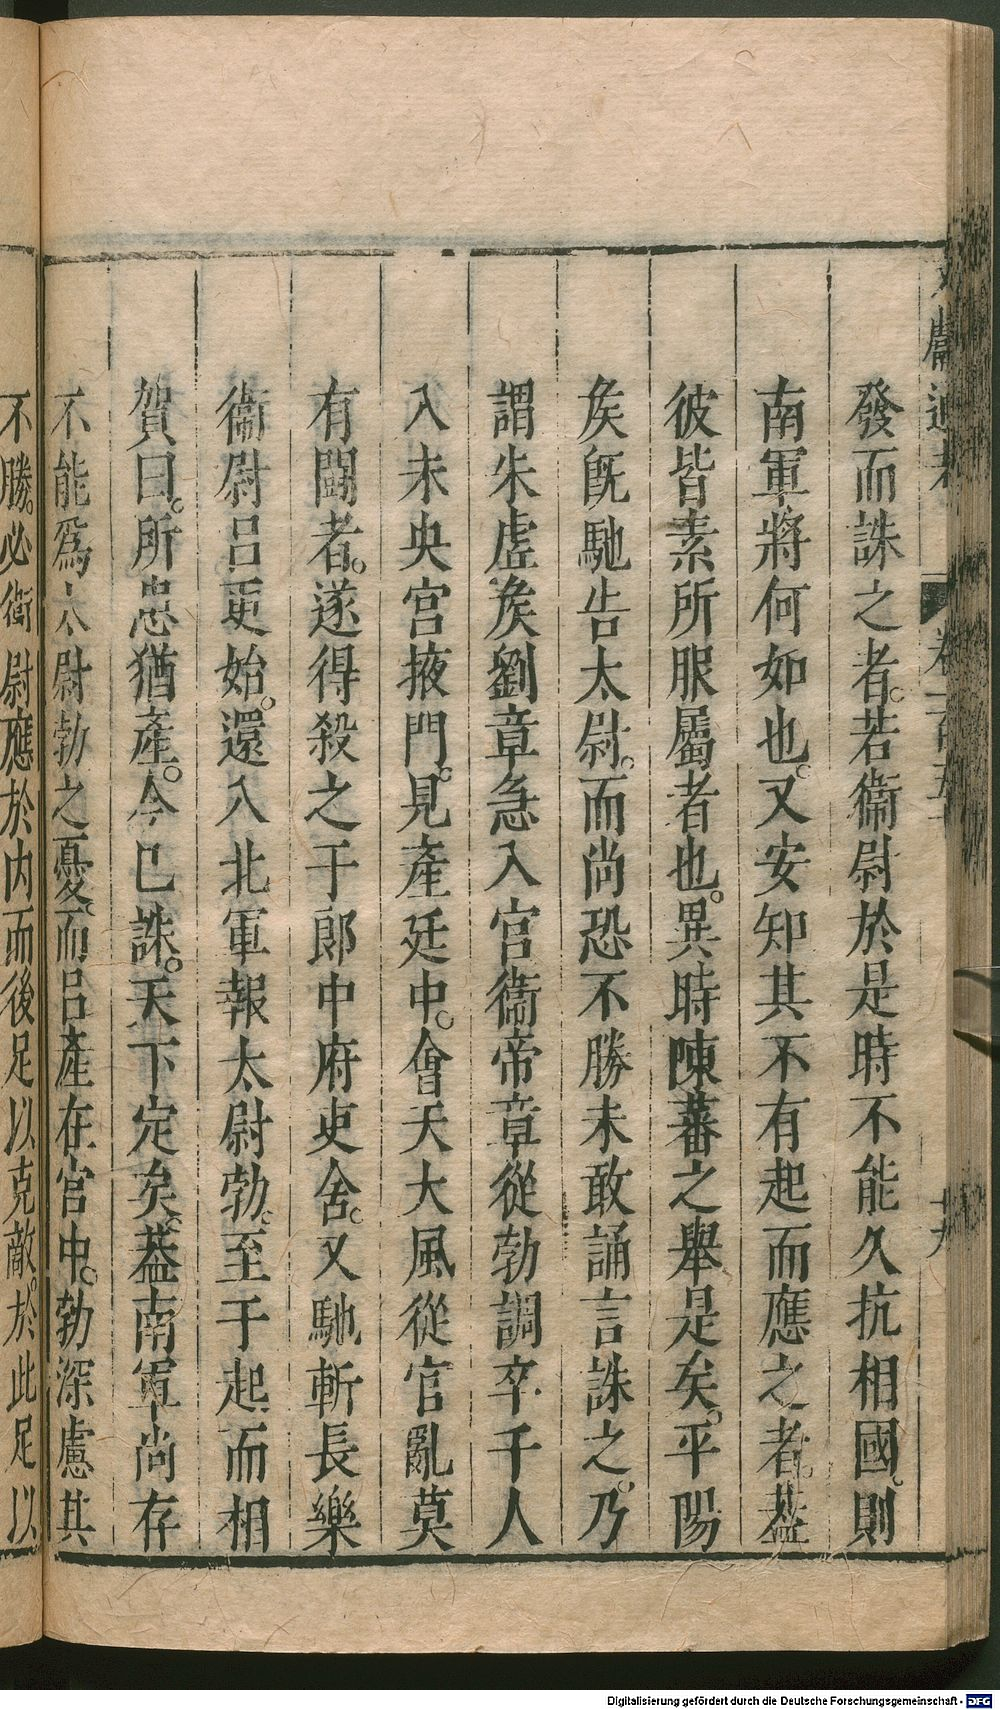 發而誅之者。若衞尉於是時不能久抗相國。則
南軍將何如也。又安知其不有起而應之者。蓋
彼皆素所服屬者也。異時陳蕃之舉是矣。平陽
矦旣馳告太尉。而尚恐不勝未敢誦言誅之。乃
謂朱虛矦劉章急入宮衞帝章從勃調卒千人
入未央宮掖門。見產廷中。會天大風從官亂莫
有鬪者。遂得殺之于郎中府吏舍。又馳斬長樂
衞尉呂更始。還入北軍報太尉勃。至于起而相
賀曰。所患猶產。今已誅。天下定矣。葢南軍尚存
不能爲太尉勃之憂。而呂產在宮中。勃深慮其
不勝。必衞尉應於内而後足以克敵。於此足以
Digitalisierung gefördert durch die Deutsche Forschungsgemeinschaft - DFG